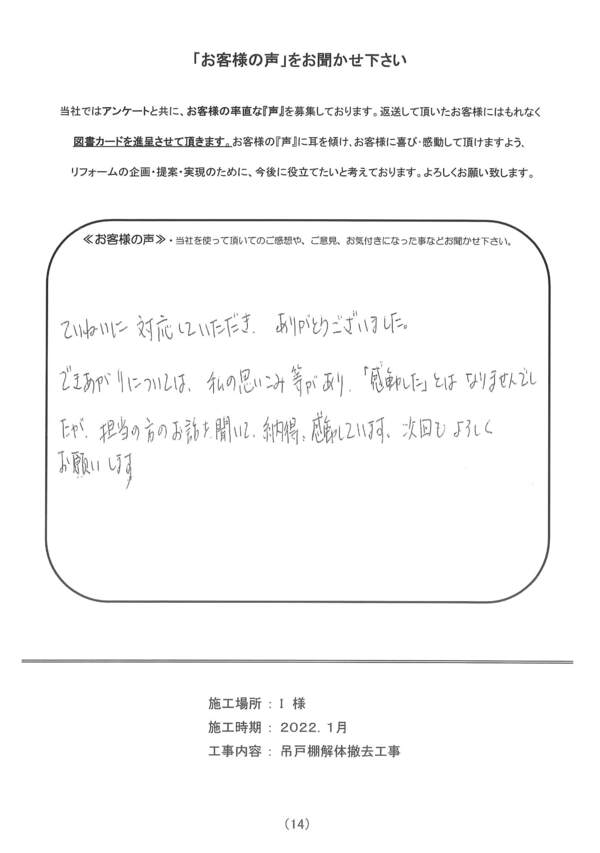 「お客様の声」をお聞かせ下さい
当社ではアンケートと共に、お客様の率直な『声』を募集しております。返送して頂いたお客様にはもれなく
図書カードを進呈させて頂きます。お客様の『声』に耳を傾け、お客様に喜び・感動して頂けますよう、
リフォームの企画・提案・実現のために、今後に役立てたいと考えております。よろしくお願い致します。
≪お客様の声≫・当社を使って頂いてのご感想や、ご意見、お気付きになった事などお聞かせ下さい。
ていねいに対応していただき、ありがとうございました。
できあがりについては、私の思いこみ等があり、「感動した」とはなりませんでし
たが、担当の方のお話を聞いて、納得、感動しています。次回もよろしく
お願いします
施工場所 : I 様
施工時期 : 2022. 1月
工事内容 : 吊戸棚解体撤去工事
(14)